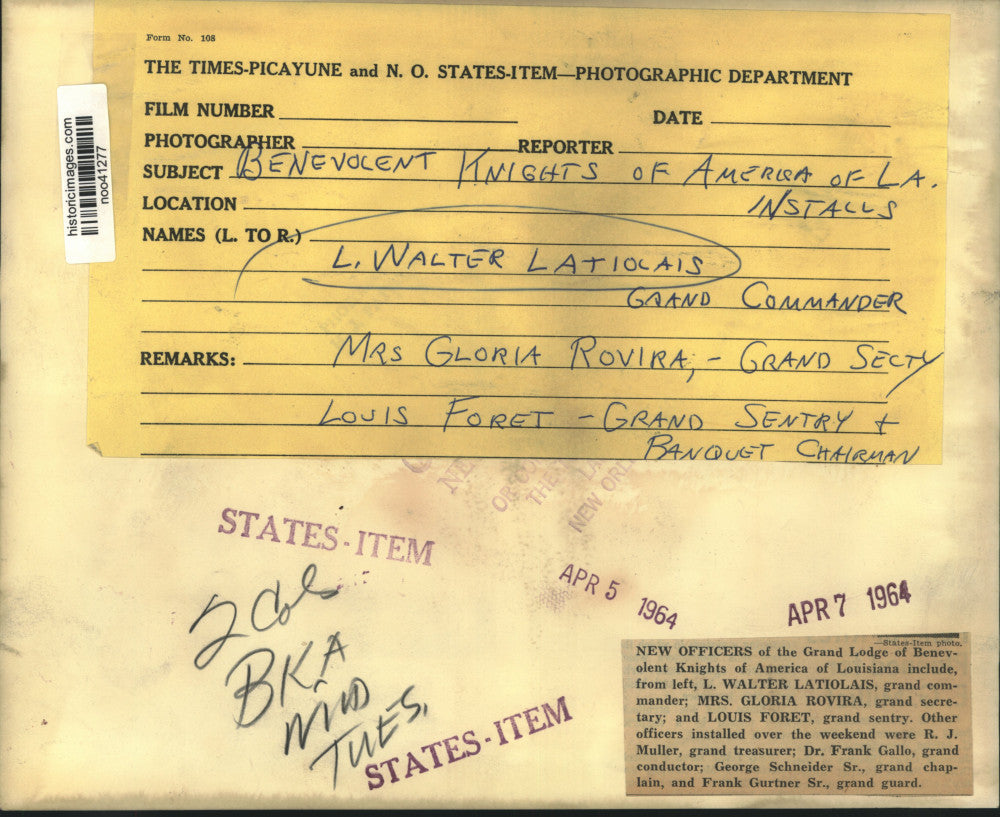 Form No. 108
THE TIMES-PICAYUNE and N. O. STATES-ITEM—PHOTOGRAPHIC DEPARTMENT
FILM NUMBER DATE
PHOTOGRAPHER REPORTER
SUBJECT BENEVOLENT KNIGHTS OF AMERICA OF LA.
LOCATION INSTALLS
NAMES (L. TO R.)
L. WALTER LATIOLAIS
GRAND COMMANDER
REMARKS: MRS GLORIA ROVIRA, - GRAND SECTY
LOUIS FORET - GRAND SENTRY +
BANQUET CHAIRMAN
historicimages.com
noo41277
NEW ORL
STATES-ITEM
APR 5 1964
APR 7 1964
2 Cols
BKA
MIB
TUES.
STATES-ITEM
—States-Item photo.
NEW OFFICERS of the Grand Lodge of Benev-
olent Knights of America of Louisiana include,
from left, L. WALTER LATIOLAIS, grand com-
mander; MRS. GLORIA ROVIRA, grand secre-
tary; and LOUIS FORET, grand sentry. Other
officers installed over the weekend were R. J.
Muller, grand treasurer; Dr. Frank Gallo, grand
conductor; George Schneider Sr., grand chap-
lain, and Frank Gurtner Sr., grand guard.